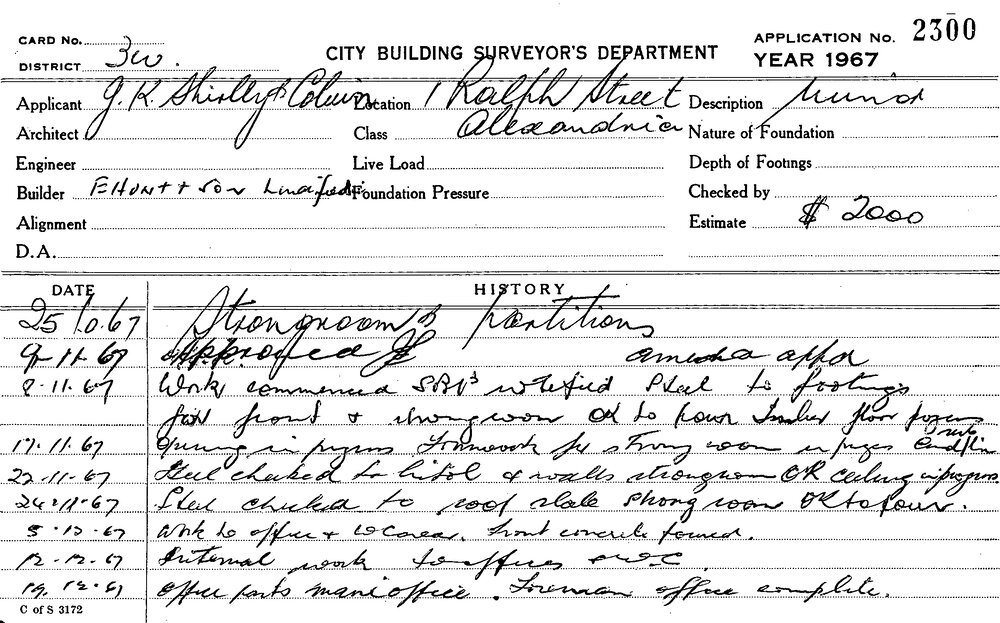 CARD No. APPLICATION No. 2300
CITY BUILDING SURVEYOR'S DEPARTMENT
DISTRICT 3w. YEAR 1967
Applicant J. R. Shirley & Location 1 Ralph Street Description
Architect Class Alexandria Nature of Foundation
Engineer Live Load Depth of Footings
Builder E Hunt + Son Foundation Pressure Checked by
Alignment Estimate $ 2000
D.A.
DATE HISTORY
25 10.67 Strongroom & partitions
9-11-67 Approved amended appd
8-11-67 Work commenced notified Steel to footings
for front & strongroom OK to pour Timber floor
17.11.67 in progress Formwork for strong room in progress
22-11-67 Steel checked to & walls strongroom OK ceiling in progress
24-11-67 Steel checked to roof slab strong room OK to pour.
5-12-67 Work to office & area. front concrete poured.
12-12-67 Internal work to offices
19.12.67 office parts main office. Foreman office complete.
C of S 3172